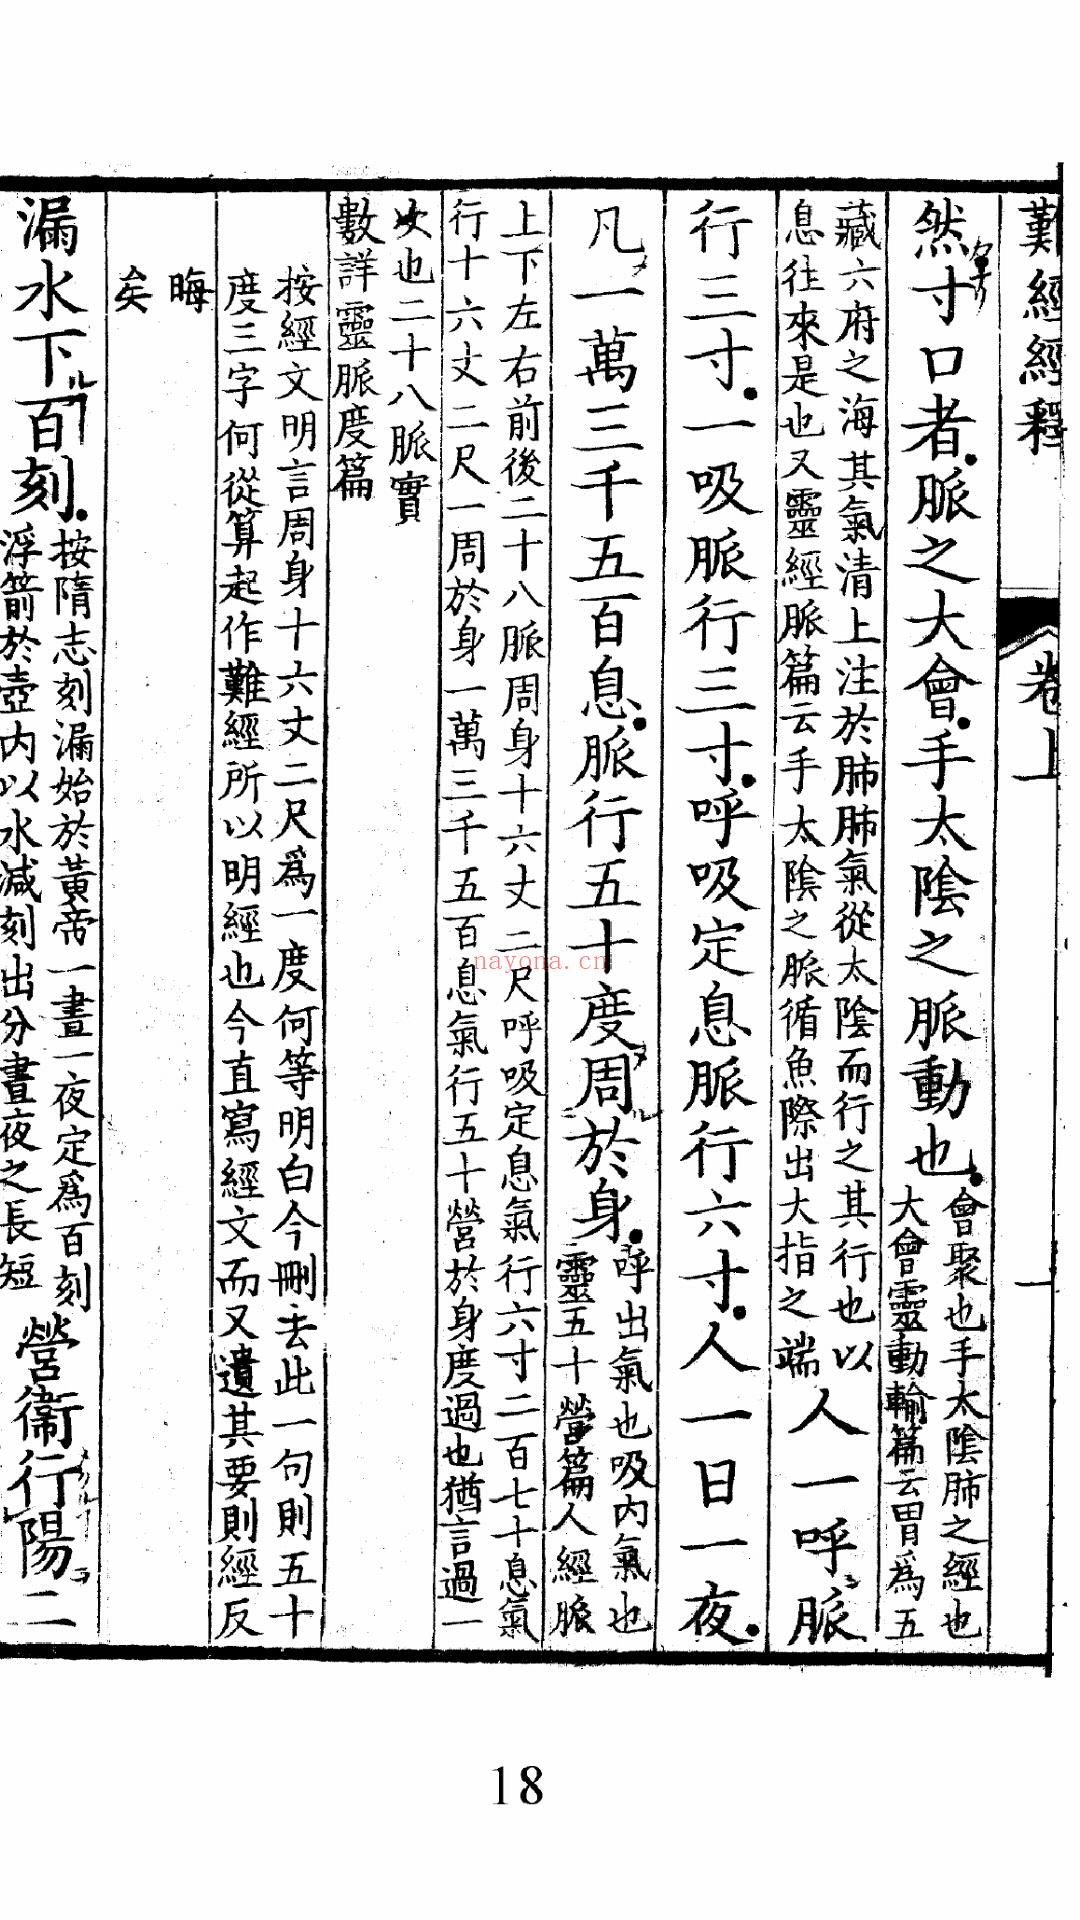 難經經釋 卷上 一
然寸口者脈之大會手太陰之脈動也會聚也手太陰肺之經也
大會靈動輸篇云胃爲五
藏六府之海其氣清上注於肺肺氣從太陰而行之其行也以
息往來是也又靈經脈篇云手太陰之脈循魚際出大指之端
人一呼脈
行三寸一吸脈行三寸呼吸定息脈行六寸人一日一夜
凡一萬三千五百息脈行五十度周於身呼出氣也吸内氣也
靈五十營篇人經脈
上下左右前後二十八脈周身十六丈二尺呼吸定息氣行六寸二百七十息氣
行十六丈二尺一周於身一萬三千五百息氣行五十營於身度過也猶言過一
次也二十八脈實
數詳靈脈度篇
按經文明言周身十六丈二尺爲一度何等明白今刪去此一句則五十
度三字何從算起作難經所以明經也今直寫經文而又遺其要則經反
晦
矣
漏水下百刻按隋志刻漏始於黃帝一晝一夜定爲百刻
浮箭於壺内以水減刻出分晝夜之長短
營衞行陽二
nayona.cn
18